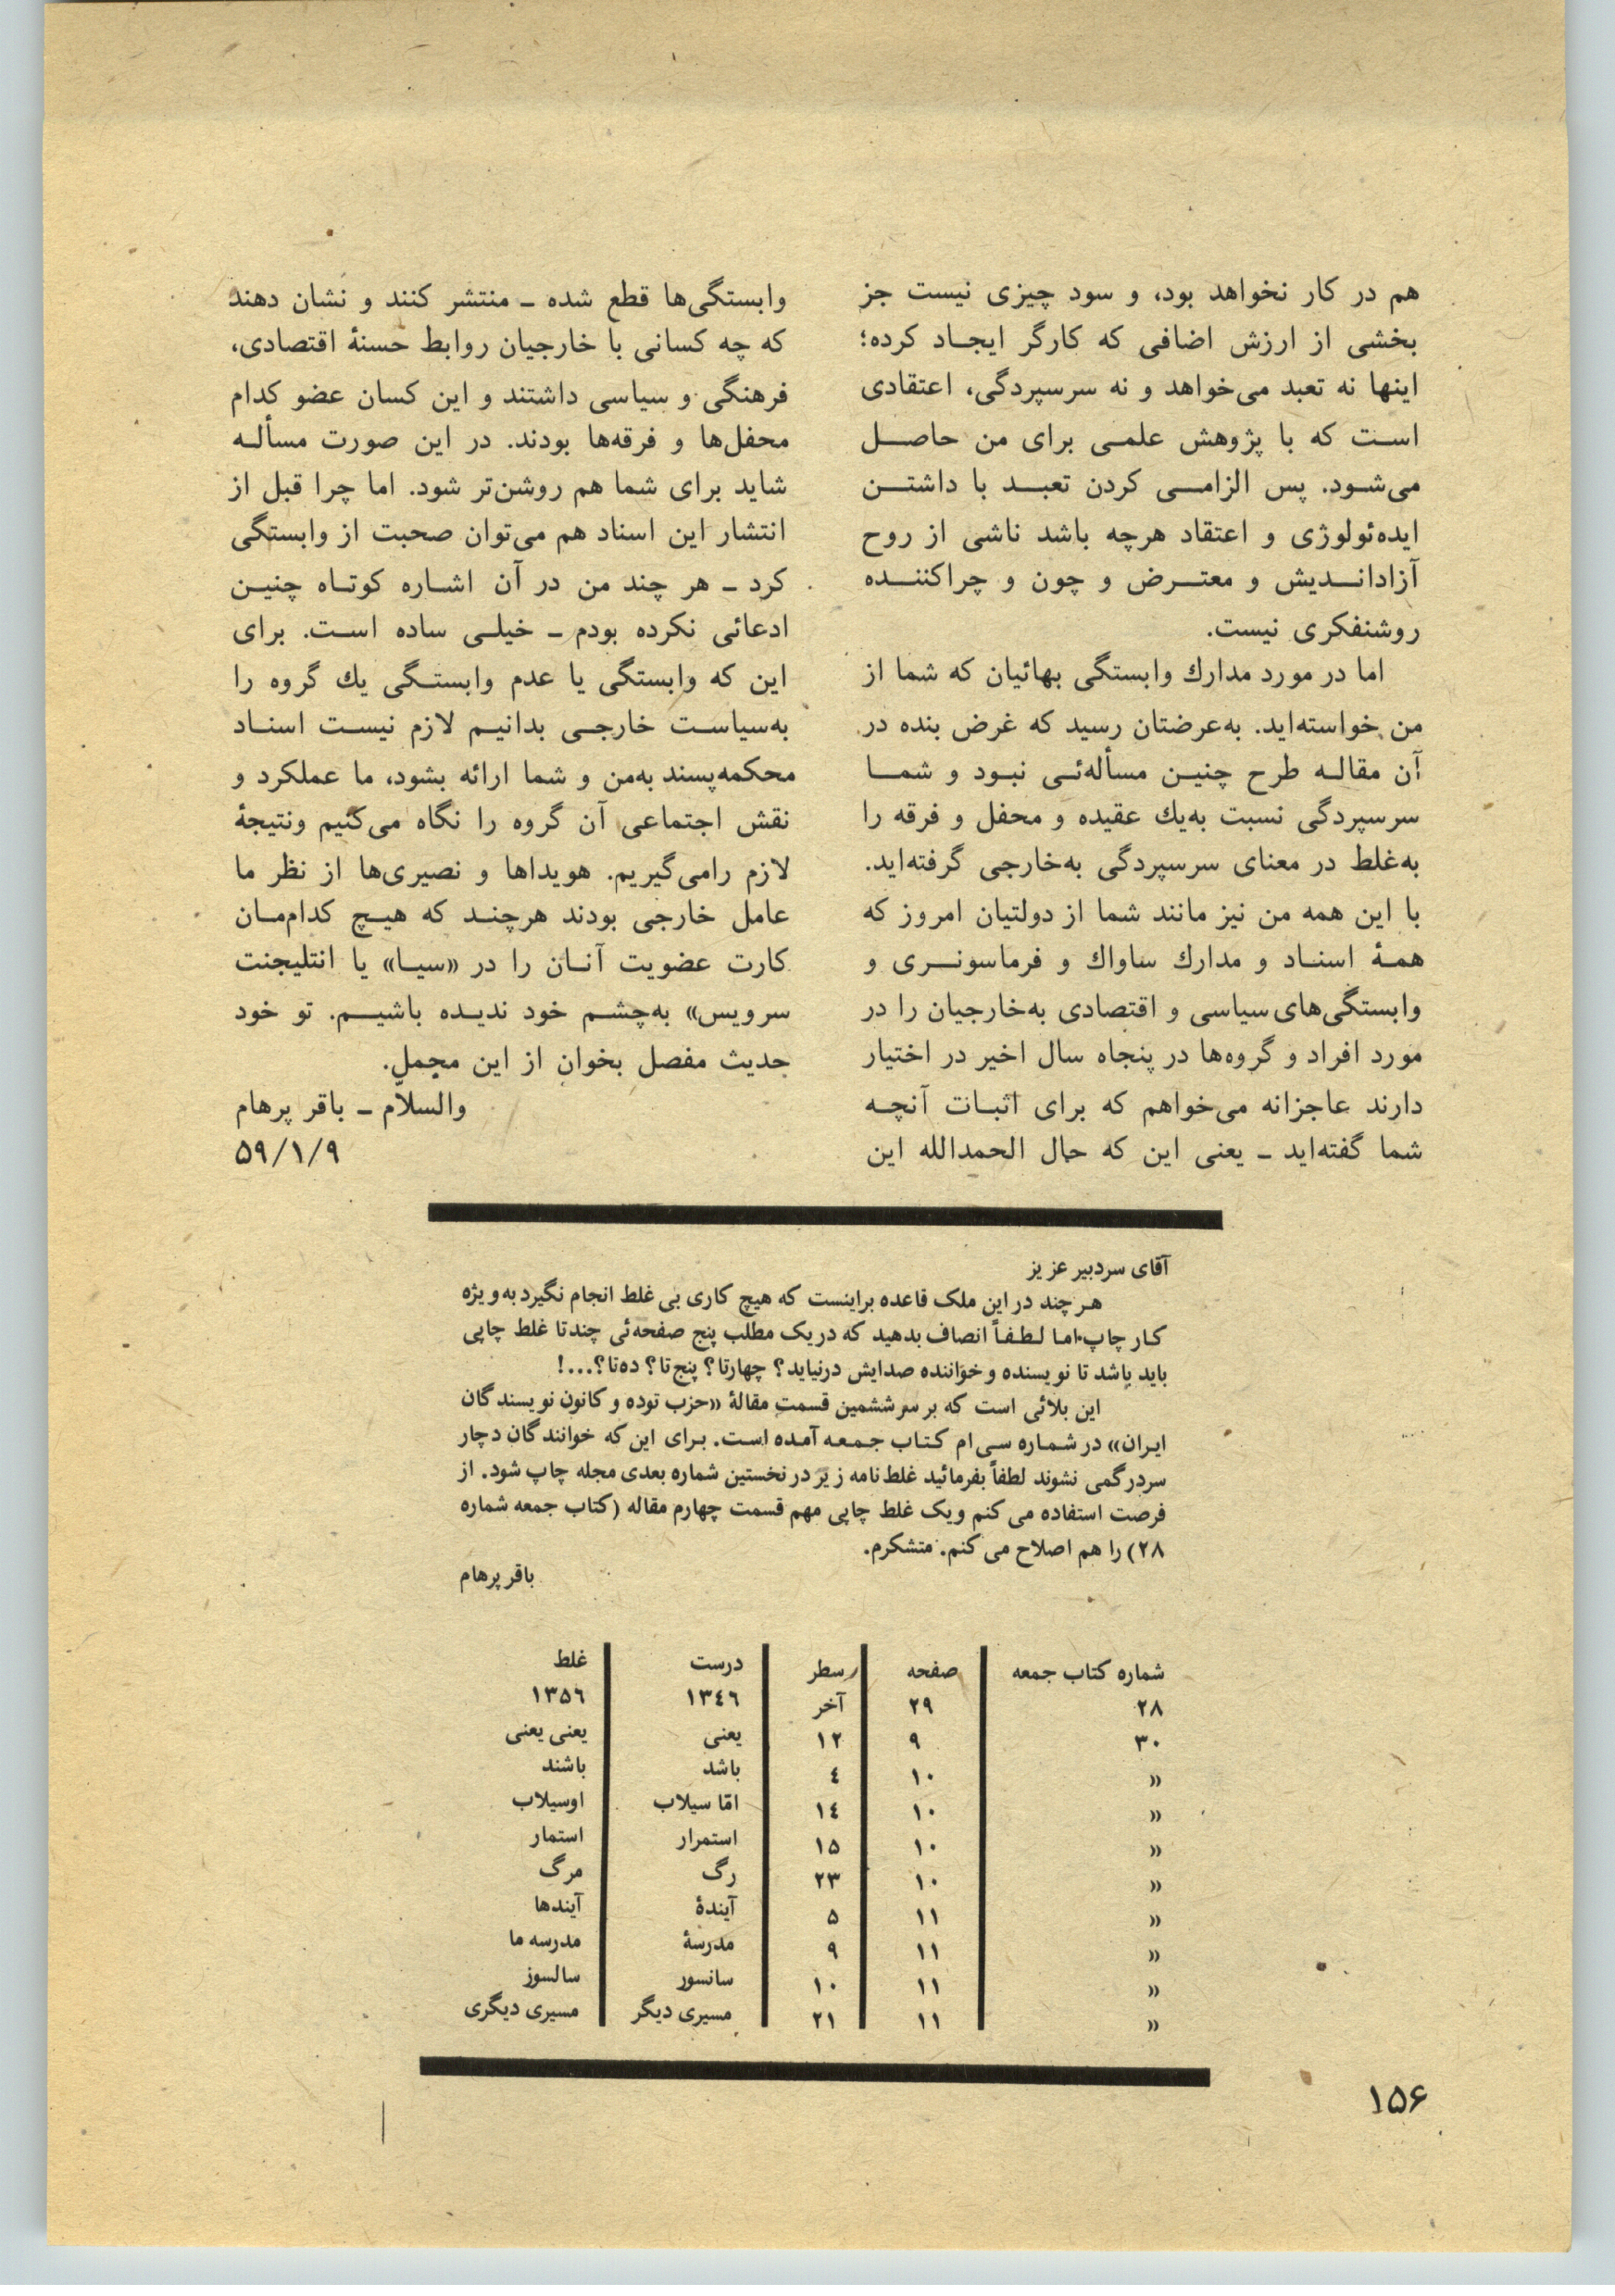 هم در کار نخواهد بود، و سود چیزی نیست جز
بخشی از ارزش اضافی که کارگر ایجاد کرده؛
اینها نه تعبد می‌خواهد و نه سرسپردگی، اعتقادی
است که با پژوهش علمی برای من حاصل
می‌شود. پس الزامی کردن تعبد با داشتن
ایده‌ئولوژی و اعتقاد هرچه باشد ناشی از روح
آزاداندیش و معترض و چون و چراکننده
روشنفکری نیست.
اما در مورد مدارك وابستگی بهائیان که شما از
من خواسته‌اید. به‌عرضتان رسید که غرض بنده در
آن مقاله طرح چنین مسأله‌ئی نبود و شما
سرسپردگی نسبت به‌یك عقیده و محفل و فرقه را
به‌غلط در معنای سرسپردگی به‌خارجی گرفته‌اید.
با این همه من نیز مانند شما از دولتیان امروز که
همهٔ اسناد و مدارك ساواك و فرماسونری و
وابستگی‌های سیاسی و اقتصادی به‌خارجیان را در
مورد افراد و گروه‌ها در پنجاه سال اخیر در اختیار
دارند عاجزانه می‌خواهم که برای اثبات آنچه
شما گفته‌اید ــ یعنی این که حال الحمدالله این
وابستگی‌ها قطع شده ــ منتشر کنند و نشان دهند
که چه کسانی با خارجیان روابط حسنهٔ اقتصادی،
فرهنگی و سیاسی داشتند و این کسان عضو کدام
محفل‌ها و فرقه‌ها بودند. در این صورت مسأله
شاید برای شما هم روشن‌تر شود. اما چرا قبل از
انتشار این اسناد هم می‌توان صحبت از وابستگی
کرد ــ هر چند من در آن اشاره کوتاه چنین
ادعائی نکرده بودم ــ خیلی ساده است. برای
این که وابستگی یا عدم وابستگی یك گروه را
به‌سیاست خارجی بدانیم لازم نیست اسناد
محکمه‌پسند به‌من و شما ارائه بشود، ما عملکرد و
نقش اجتماعی آن گروه را نگاه می‌کنیم ونتیجهٔ
لازم رامی‌گیریم. هویداها و نصیری‌ها از نظر ما
عامل خارجی بودند هرچند که هیچ کدام‌مان
کارت عضویت آنان را در «سیا» یا انتلیجنت
سرویس» به‌چشم خود ندیده باشیم. تو خود
حدیث مفصل بخوان از این مجمل.
والسلام ــ باقر پرهام
۵۹/۱/۹
آقای سردبیر عزیز
هر چند در این ملک قاعده براینست که هیچ کاری بی غلط انجام نگیرد به‌ویژه
کار چاپ. اما لطفاً انصاف بدهید که در یک مطلب پنج صفحه‌ئی چندتا غلط چاپی
باید باشد تا نویسنده و خواننده صدایش درنیاید؟ چهارتا؟ پنج‌تا؟ ده‌تا؟...!
این بلائی است که بر سر ششمین قسمت مقالهٔ «حزب توده و کانون نویسندگان
ایران» در شماره سی ام کتاب جمعه آمده است. برای این که خوانندگان دچار
سردرگمی نشوند لطفاً بفرمائید غلط‌نامه زیر در نخستین شماره بعدی مجله چاپ شود. از
فرصت استفاده می کنم و یک غلط چاپی مهم قسمت چهارم مقاله (کتاب جمعه شماره
۲۸) را هم اصلاح می کنم. متشکرم.
باقر پرهام
شماره کتاب جمعه صفحه سطر درست غلط
۲۸ ۲۹ آخر ۱۳٤٦ ۱۳۵٦
۳۰ ۹ ۱۲ یعنی یعنی یعنی
« ۱۰ ٤ باشد باشند
« ۱۰ ۱٤ امّا سیلاب اوسیلاب
« ۱۰ ۱۵ استمرار استمار
« ۱۰ ۲۳ رگ مرگ
« ۱۱ ۵ آیندهٔ آیندها
« ۱۱ ۹ مدرسهٔ مدرسه ما
« ۱۱ ۱۰ سانسور سالسوز
« ۱۱ ۲۱ مسیری دیگر مسیری دیگری
۱۵۶